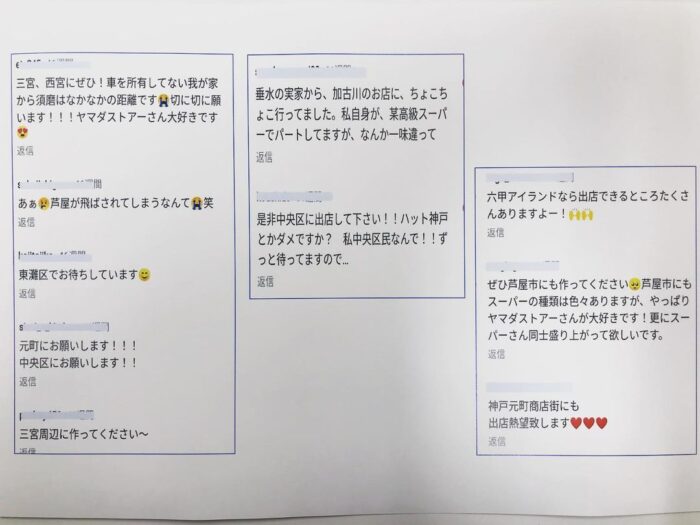 三宮、西宮にぜひ！車を所有してない我が家
から須磨はなかなかの距離です😭切に切に願
います！！！ヤマダストアーさん大好きです
😍
返信
週間
あぁ😢芦屋が飛ばされてしまうなんて😭笑
返信
週間
東灘区でお待ちしています😊
返信
元町にお願いします！！！
中央区にお願いします！！
返信
週間
三宮周辺に作ってください〜
返信
垂水の実家から、加古川のお店に、ちょこち
ょこ行ってました。私自身が、某高級スーパ
ーでパートしてますが、なんか一味違って
返信
是非中央区に出店して下さい！！ハット神戸
とかダメですか？　私中央区民なんで！！ず
っと待ってますので...
返信
六甲アイランドなら出店できるところたくさ
んありますよー！🙌🙌
返信
ぜひ芦屋市にも作ってください🥺芦屋市にも
スーパーの種類は色々ありますが、やっぱり
ヤマダストアーさんが大好きです！更にスー
パーさん同士盛り上がって欲しいです。
返信
神戸元町商店街にも
出店熱望致します❤️❤️❤️
返信